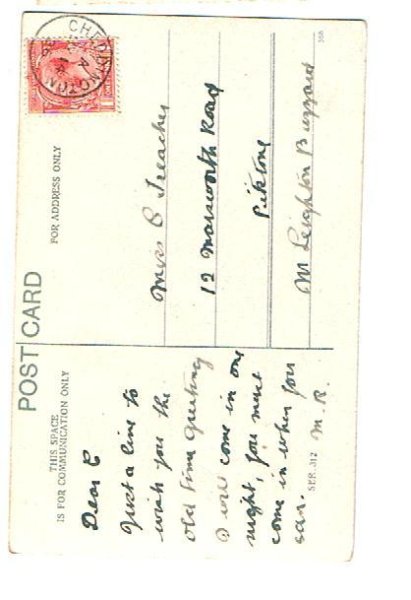 POST CARD
THIS SPACE
IS FOR COMMUNICATION ONLY
FOR ADDRESS ONLY
Dear C
Just a line to
wish you the
old time greeting
I will come in one
night, you must
come in when you
can.
M.R.
SER. 312
CHEDDINGTON
Miss C Treacher
12 Marsworth Road
Pitstone
Nr Leighton Buzzard